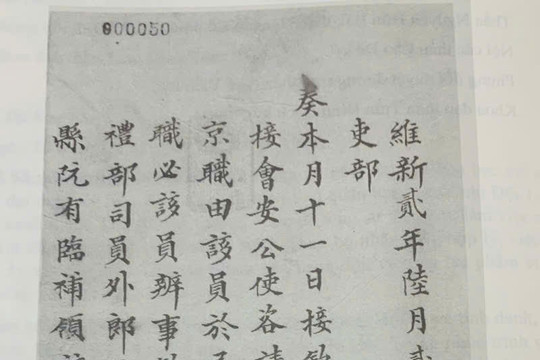 000050
維新貳年陸月
吏部
奏本月十一日接
接會安公使咨
京職由該員於
職必該員辦事
禮部司員外郎
縣阮有臨補領